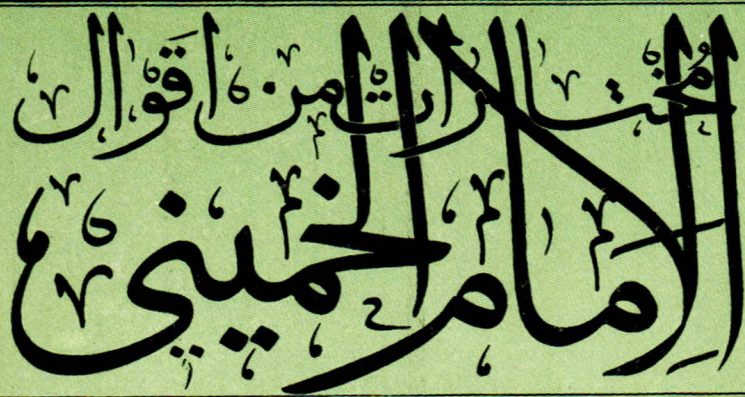 مُختارات من اقَوال
الإمام الخميني